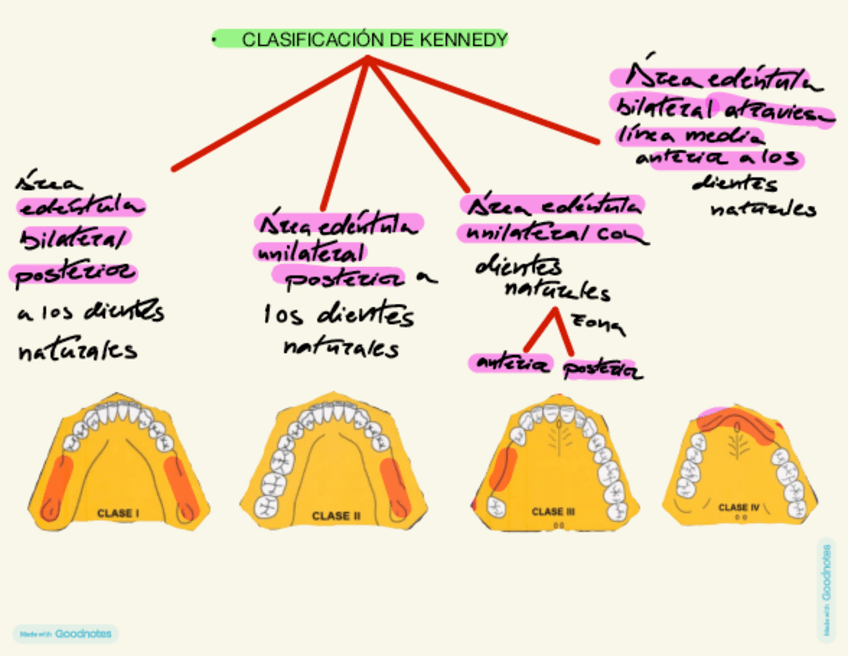 • CLASIFICACIÓN DE KENNEDY
Área
edéntula
bilateral
posterior
a los dientes
naturales
Área edéntula
unilateral
posterior a
los dientes
naturales
Área edéntula
unilateral con
dientes
naturales
Zona
anterior posterior
Área edéntula
bilateral atraviesa
línea media
anterior a los
dientes
naturales
CLASE I
CLASE II
CLASE III
CLASE IV
Made with Goodnotes
Made with Goodnotes